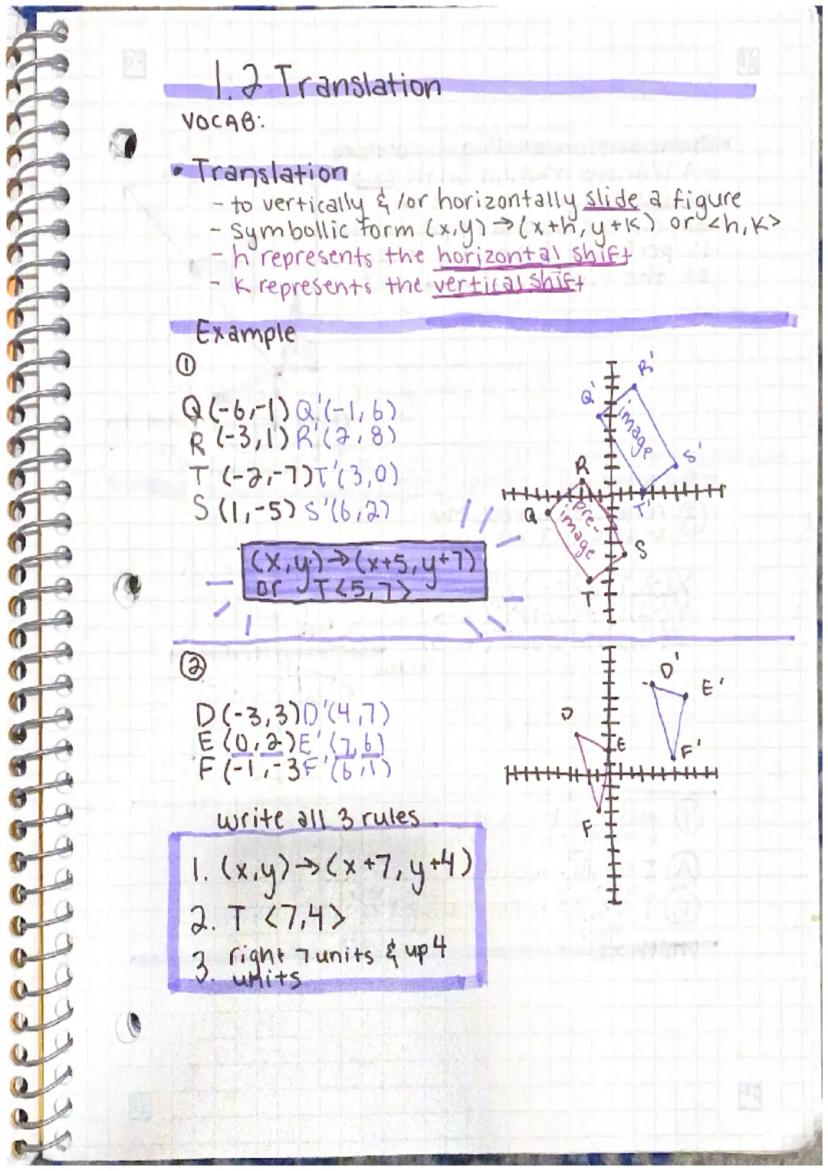 1.2 Translation
VOCAB:
• Translation
- to vertically & /or horizontally slide a figure
- Symbollic form (x,y)→(x+h, y+k) or <h,k>
- h represents the horizontal shift
- k represents the vertical shift
Example
①
Q(-6,-1) Q'(-1,6)
R(-3,1) R'(2,8)
T(-2,-7) T'(3,0)
S(1,-5) S'(6,2)
(x,y)→(x+5,y+7)
or T<5,7>
R'
Q'
image
S'
R
T'
Q
pre-
image
S
T
②
D(-3,3) D'(4,7)
E(0,2) E'(7,6)
F(-1,-3 F'(6,1)
write all 3 rules
1. (x,y)→(x+7,y+4)
2. T <7,4>
3. right 7 units & up 4
units
D'
E'
D
E
F'
F